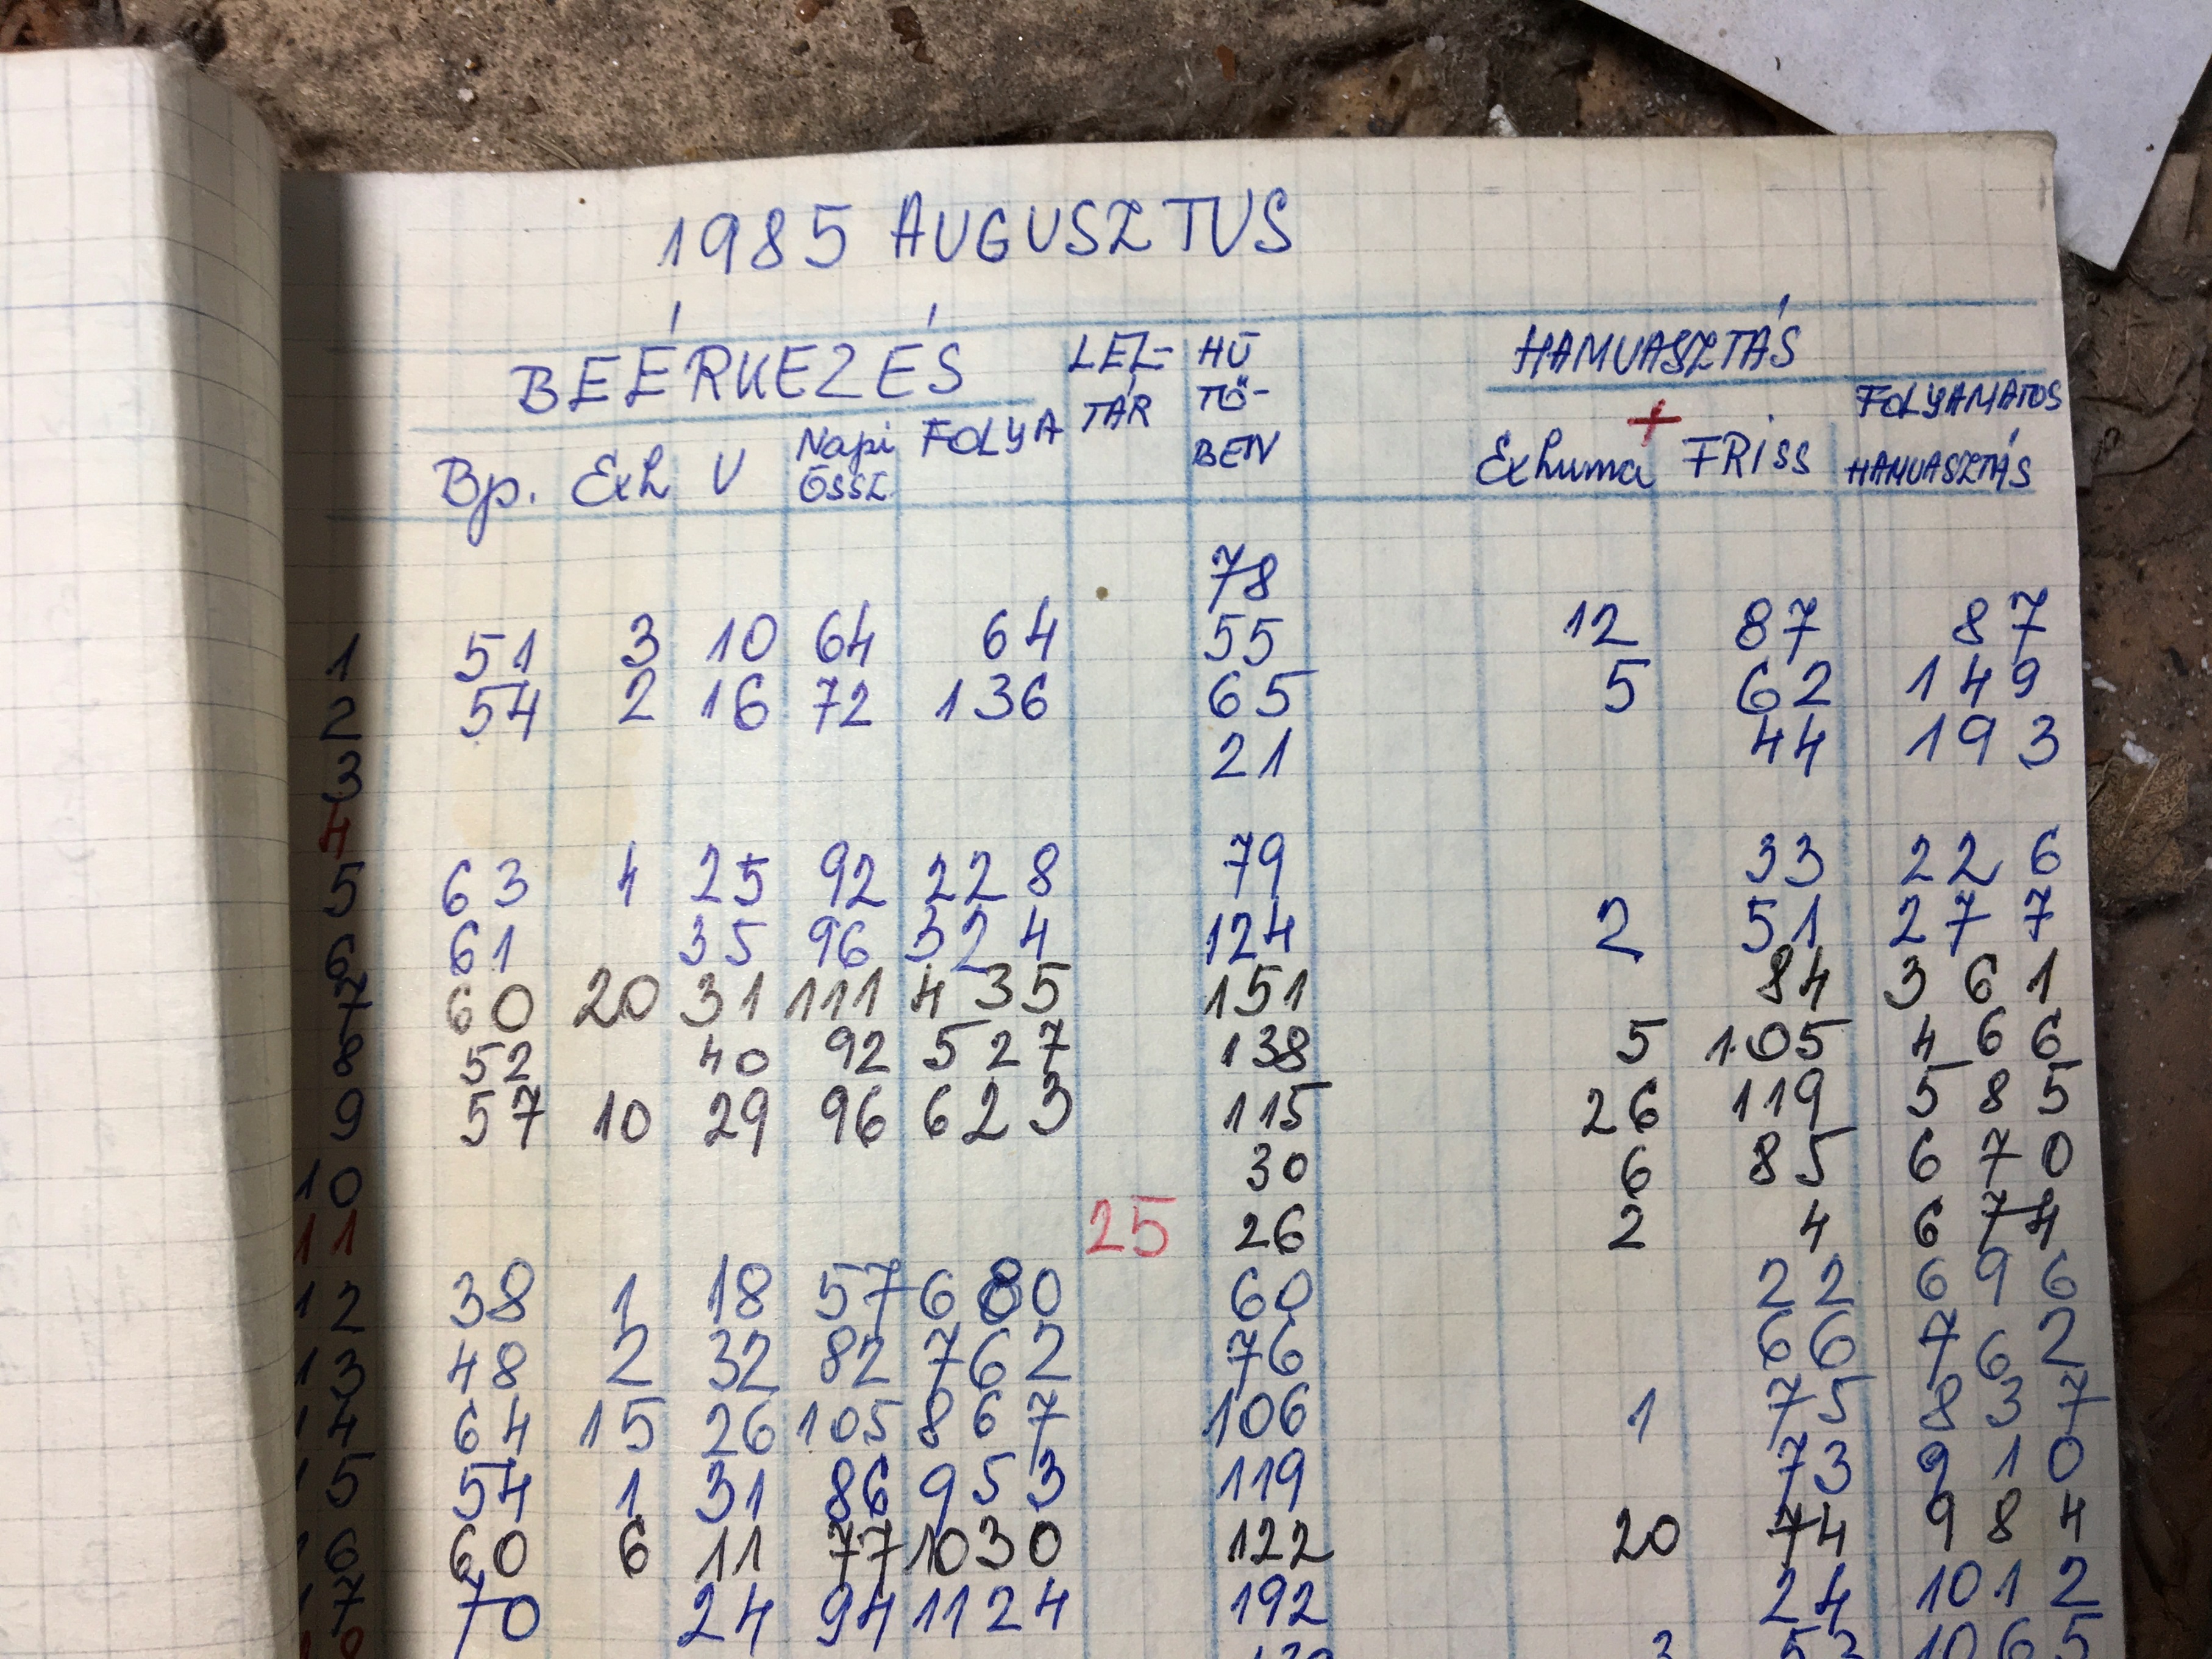 1985 AUGUSZTUS
BEÉRKEZÉS LEL- HŰ HAMVASZTÁS
TÁR TŐ- + FOLYAMATOS
Bp. Exh V Napi FOLYA BEN Exhuma FRISS HAMVASZTÁS
ÖSSZ
78
1 51 3 10 64 64 55 12 87 87
2 54 2 16 72 136 65 5 62 149
3 21 44 193
4
5 63 4 25 92 228 79 33 226
6 61 35 96 324 124 2 51 277
7 60 20 31 111 435 151 84 361
8 52 40 92 527 138 5 105 466
9 57 10 29 96 623 115 26 119 585
10 30 6 85 670
11 25 26 2 4 674
12 38 1 18 57 680 60 22 696
13 48 2 32 82 762 76 66 762
14 64 15 26 105 867 106 1 75 837
15 54 1 31 86 953 119 73 910
16 60 6 11 77 1030 122 20 74 984
17 70 24 94 1124 192 24 1012
3 53 1065